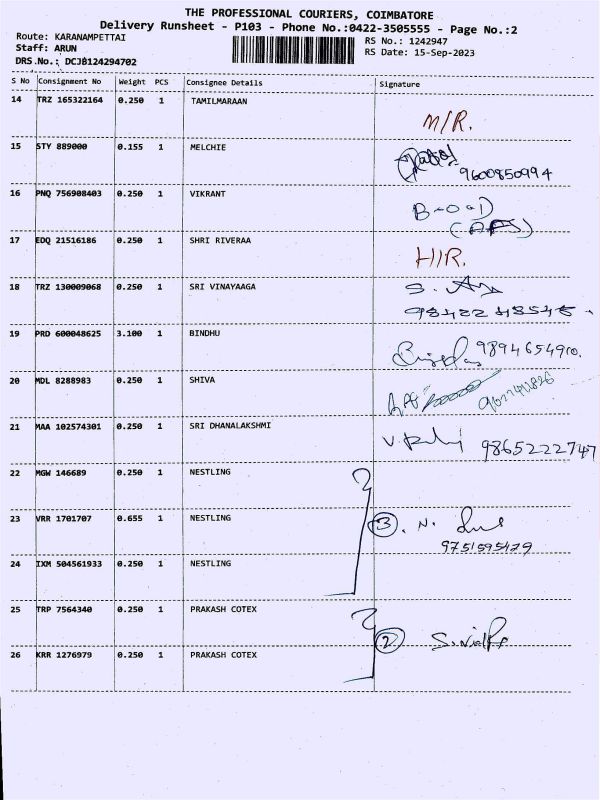 THE PROFESSIONAL COURIERS, COIMBATORE
Delivery Runsheet - P103 - Phone No.:0422-3505555 - Page No.:2
Route: KARANAMPETTAI
Staff: ARUN
DRS.No.: DCJB124294702
RS No.: 1242947
RS Date: 15-Sep-2023
S No Consignment No Weight PCS Consignee Details Signature
14 TRZ 165322164 0.250 1 TAMILMARAAN
M/R.
15 STY 889000 0.155 1 MELCHIE
9600850994
16 PNQ 756908403 0.250 1 VIKRANT
17 EDQ 21516186 0.250 1 SHRI RIVERAA
H/R.
18 TRZ 130009068 0.250 1 SRI VINAYAAGA
19 PRD 600048625 3.100 1 BINDHU
9894654910.
20 MDL 8288983 0.250 1 SHIVA
21 MAA 102574301 0.250 1 SRI DHANALAKSHMI
9865222747
22 MGW 146689 0.250 1 NESTLING
23 VRR 1701707 0.655 1 NESTLING
3 . N.
9751595479
24 IXM 504561933 0.250 1 NESTLING
25 TRP 7564340 0.250 1 PRAKASH COTEX
2
26 KRR 1276979 0.250 1 PRAKASH COTEX